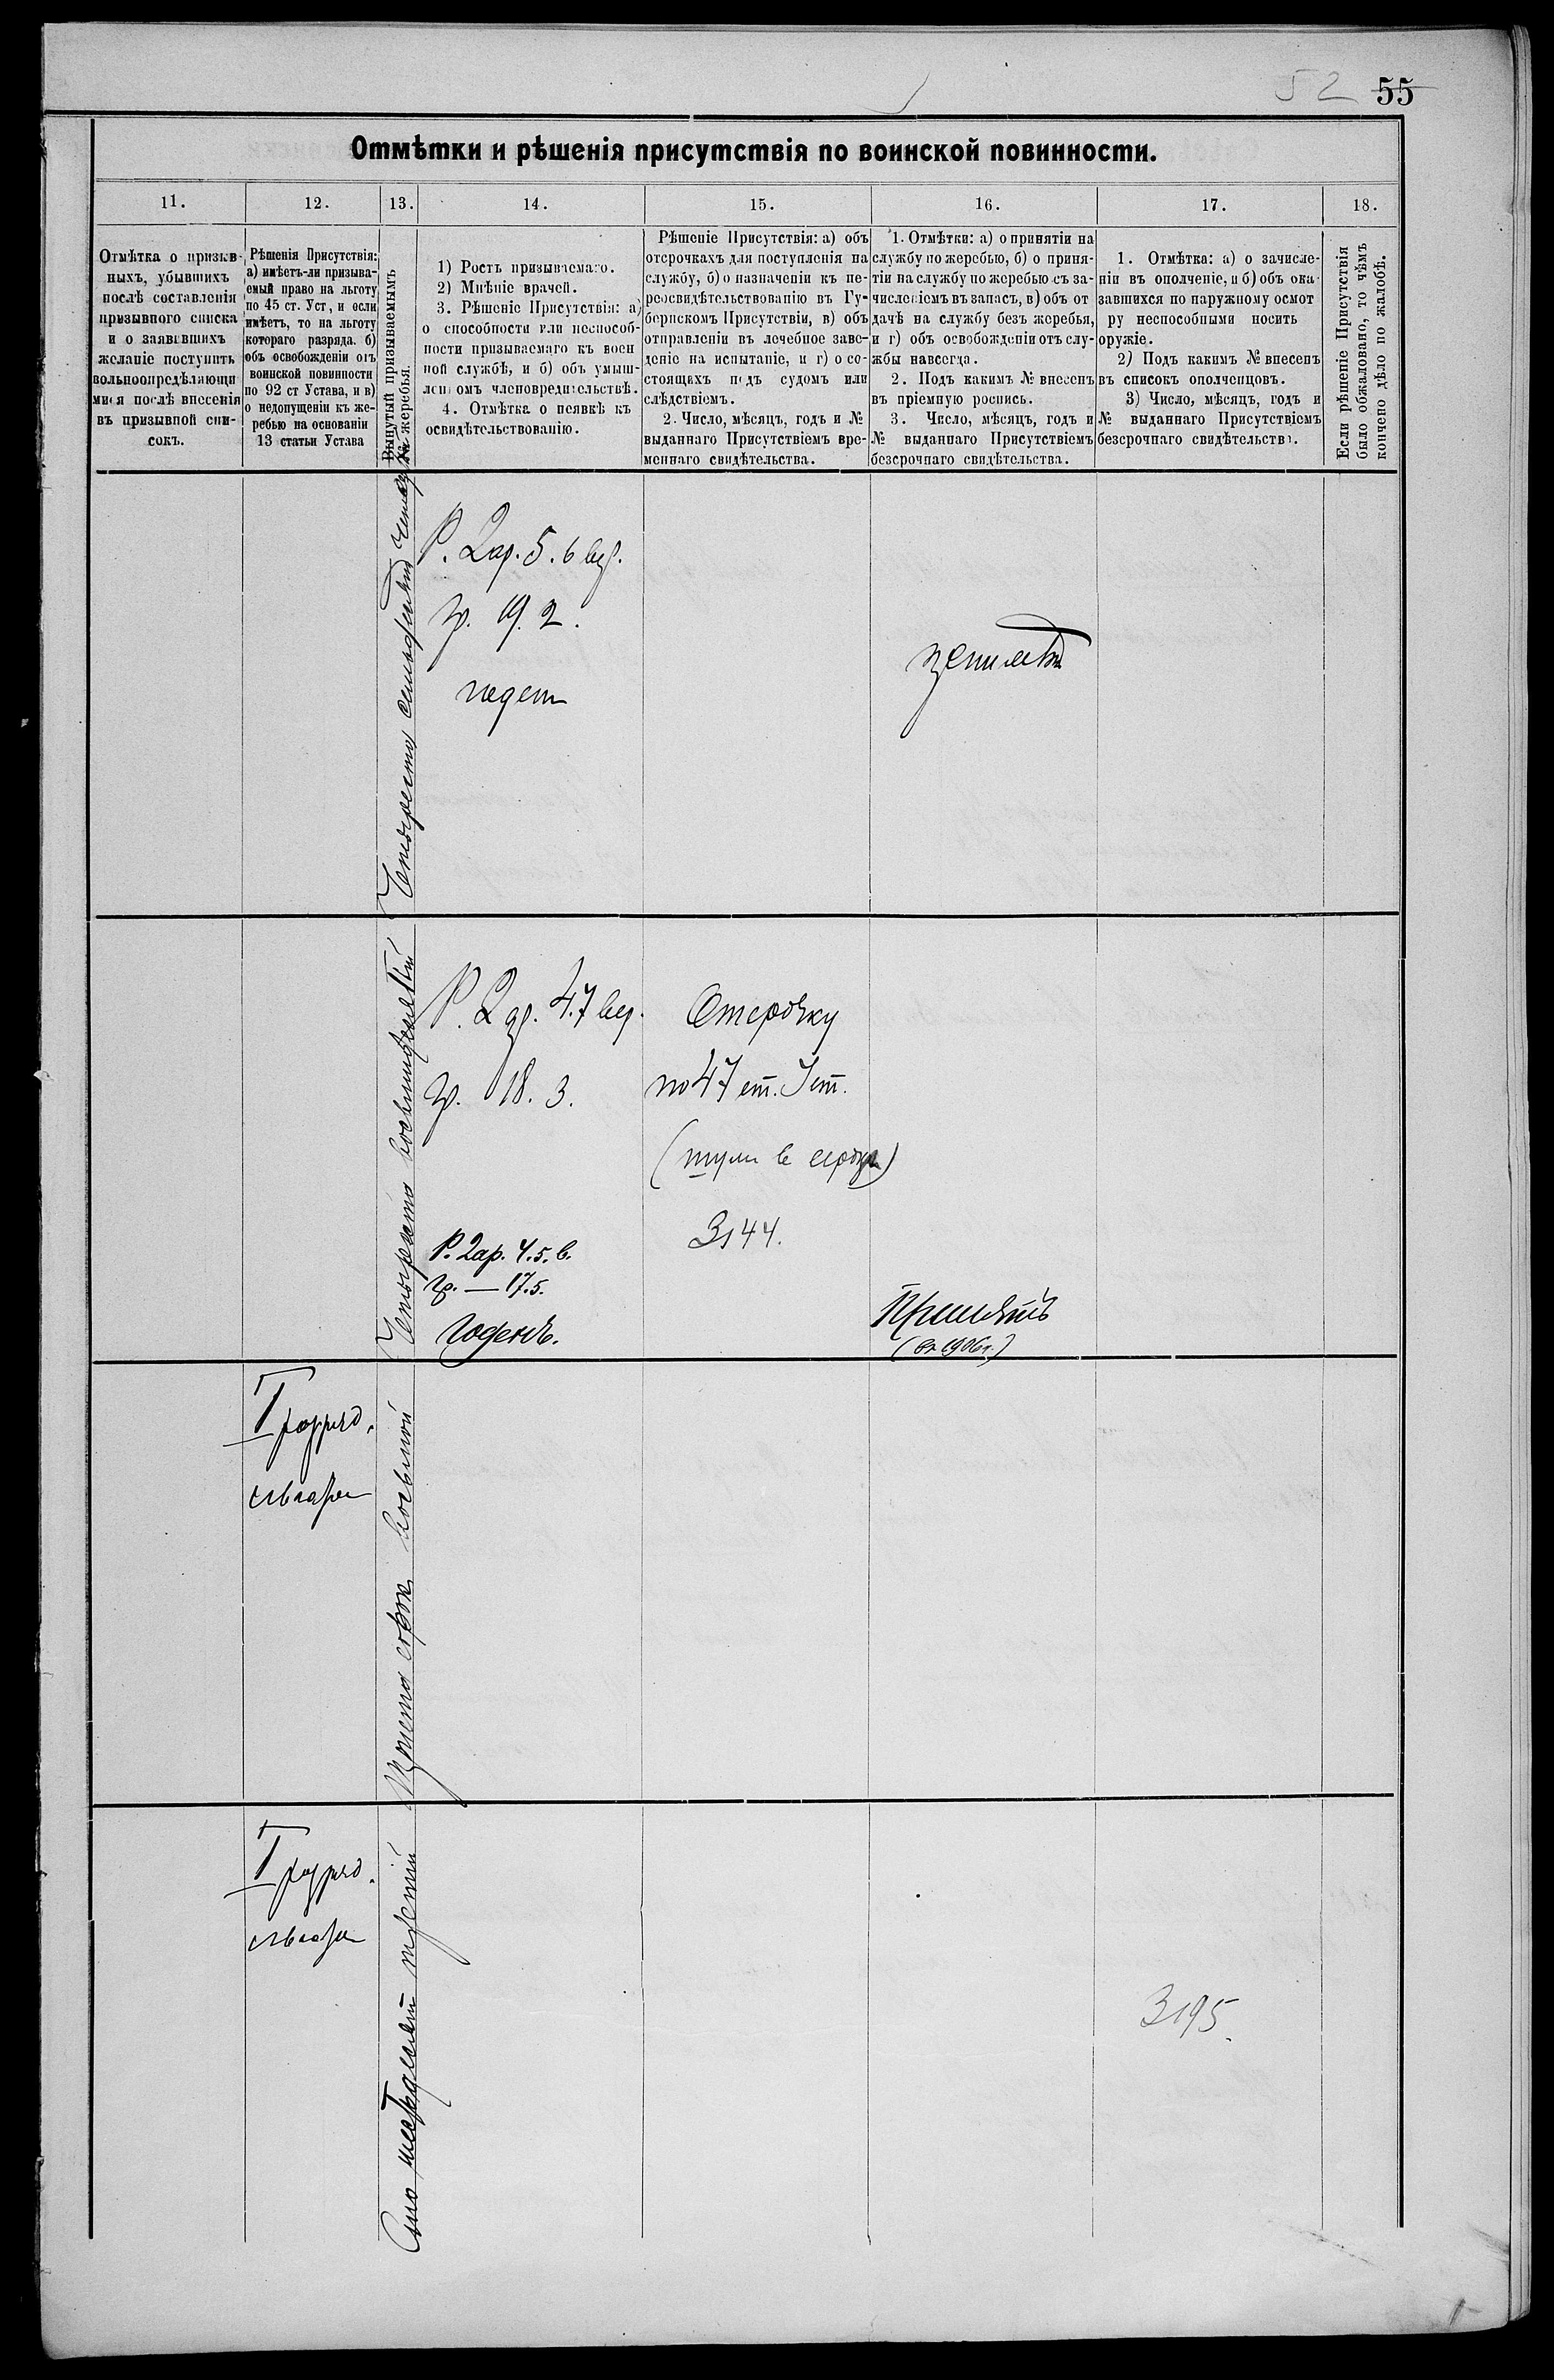 52 55
Отмѣтки и рѣшенія присутствія по воинской повинности.
11.
12.
13.
14.
15.
16.
17.
18.
Отмѣтка о призыв-
ныхъ, убывшихъ
послѣ составленія
призывного списка
и о заявившихъ
желаніе поступить
вольноопредѣляющи
мися послѣ внесенія
въ призывной спи-
сокъ.
Рѣшенія Присутствія:
а) имѣетъ-ли призыва-
емый право на льготу
по 45 ст. Уст, и если
имѣетъ, то на льготу
котораго разряда. б)
объ освобожденіи отъ
воинской повинности
по 92 ст Устава, и в)
о недопущеніи къ же-
ребью на основаніи
13 статьи Устава
Вынутый призываемымъ
№ жеребья.
1) Ростъ призываемаго.
2) Мнѣніе врачей.
3. Рѣшеніе Присутствія: а)
о способности или неспособ-
ности призываемаго къ воен
ной службѣ, и б) объ умыш-
ленномъ членовредительствѣ.
4. Отмѣтка о неявкѣ къ
освидѣтельствованію.
Рѣшеніе Присутствія: а) объ
отсрочкахъ для поступленія на
службу, б) о назначеніи къ пе-
реосвидѣтельствованію въ Гу-
бернскомъ Присутствіи, в) объ
отправленіи въ лечебное заве-
деніе на испытаніе, и г) о со-
стоящихъ подъ судомъ или
слѣдствіемъ.
2. Число, мѣсяцъ, годъ и №
выданнаго Присутствіемъ вре-
меннаго свидѣтельства.
1. Отмѣтки: а) о принятіи на
службу по жеребью, б) о приня-
тіи на службу по жеребью съ за-
численіемъ въ запасъ, в) объ от
дачѣ на службу безъ жеребья,
и г) объ освобожденіи отъ слу-
жбы навсегда.
2. Подъ какимъ № внесенъ
въ пріемную роспись.
3. Число, мѣсяцъ, годъ и
№ выданнаго Присутствіемъ
безсрочнаго свидѣтельства.
1. Отмѣтка: а) о зачисле-
ніи въ ополченіе, и б) объ ока
завшихся по наружному осмот
ру неспособными носить
оружіе.
2) Подъ какимъ № внесенъ
въ списокъ ополченцовъ.
3) Число, мѣсяцъ, годъ и
№ выданнаго Присутствіемъ
безсрочнаго свидѣтельства.
Если рѣшеніе Присутствія
было обжаловано, то чѣмъ
кончено дѣло по жалобѣ.
Четыреста семьдесят четыре
Р. 2 ар. 5. 6 вер.
гр. 19. 2.
годен
принятъ
Четыреста восемьдесятый
Р. 2 ар. 4. 7 вер.
гр. 18. 3.
Отсрочку
по 47 ст. Уст.
3144.
Р. 2 ар. 4. 5. в.
гр. — 17. 5.
годенъ.
Принятъ
(въ 1906 г.)
I разряд.
льгота
Триста сорок восьмой
I разряд.
льгота
Сто шестьдесят третий
3195.